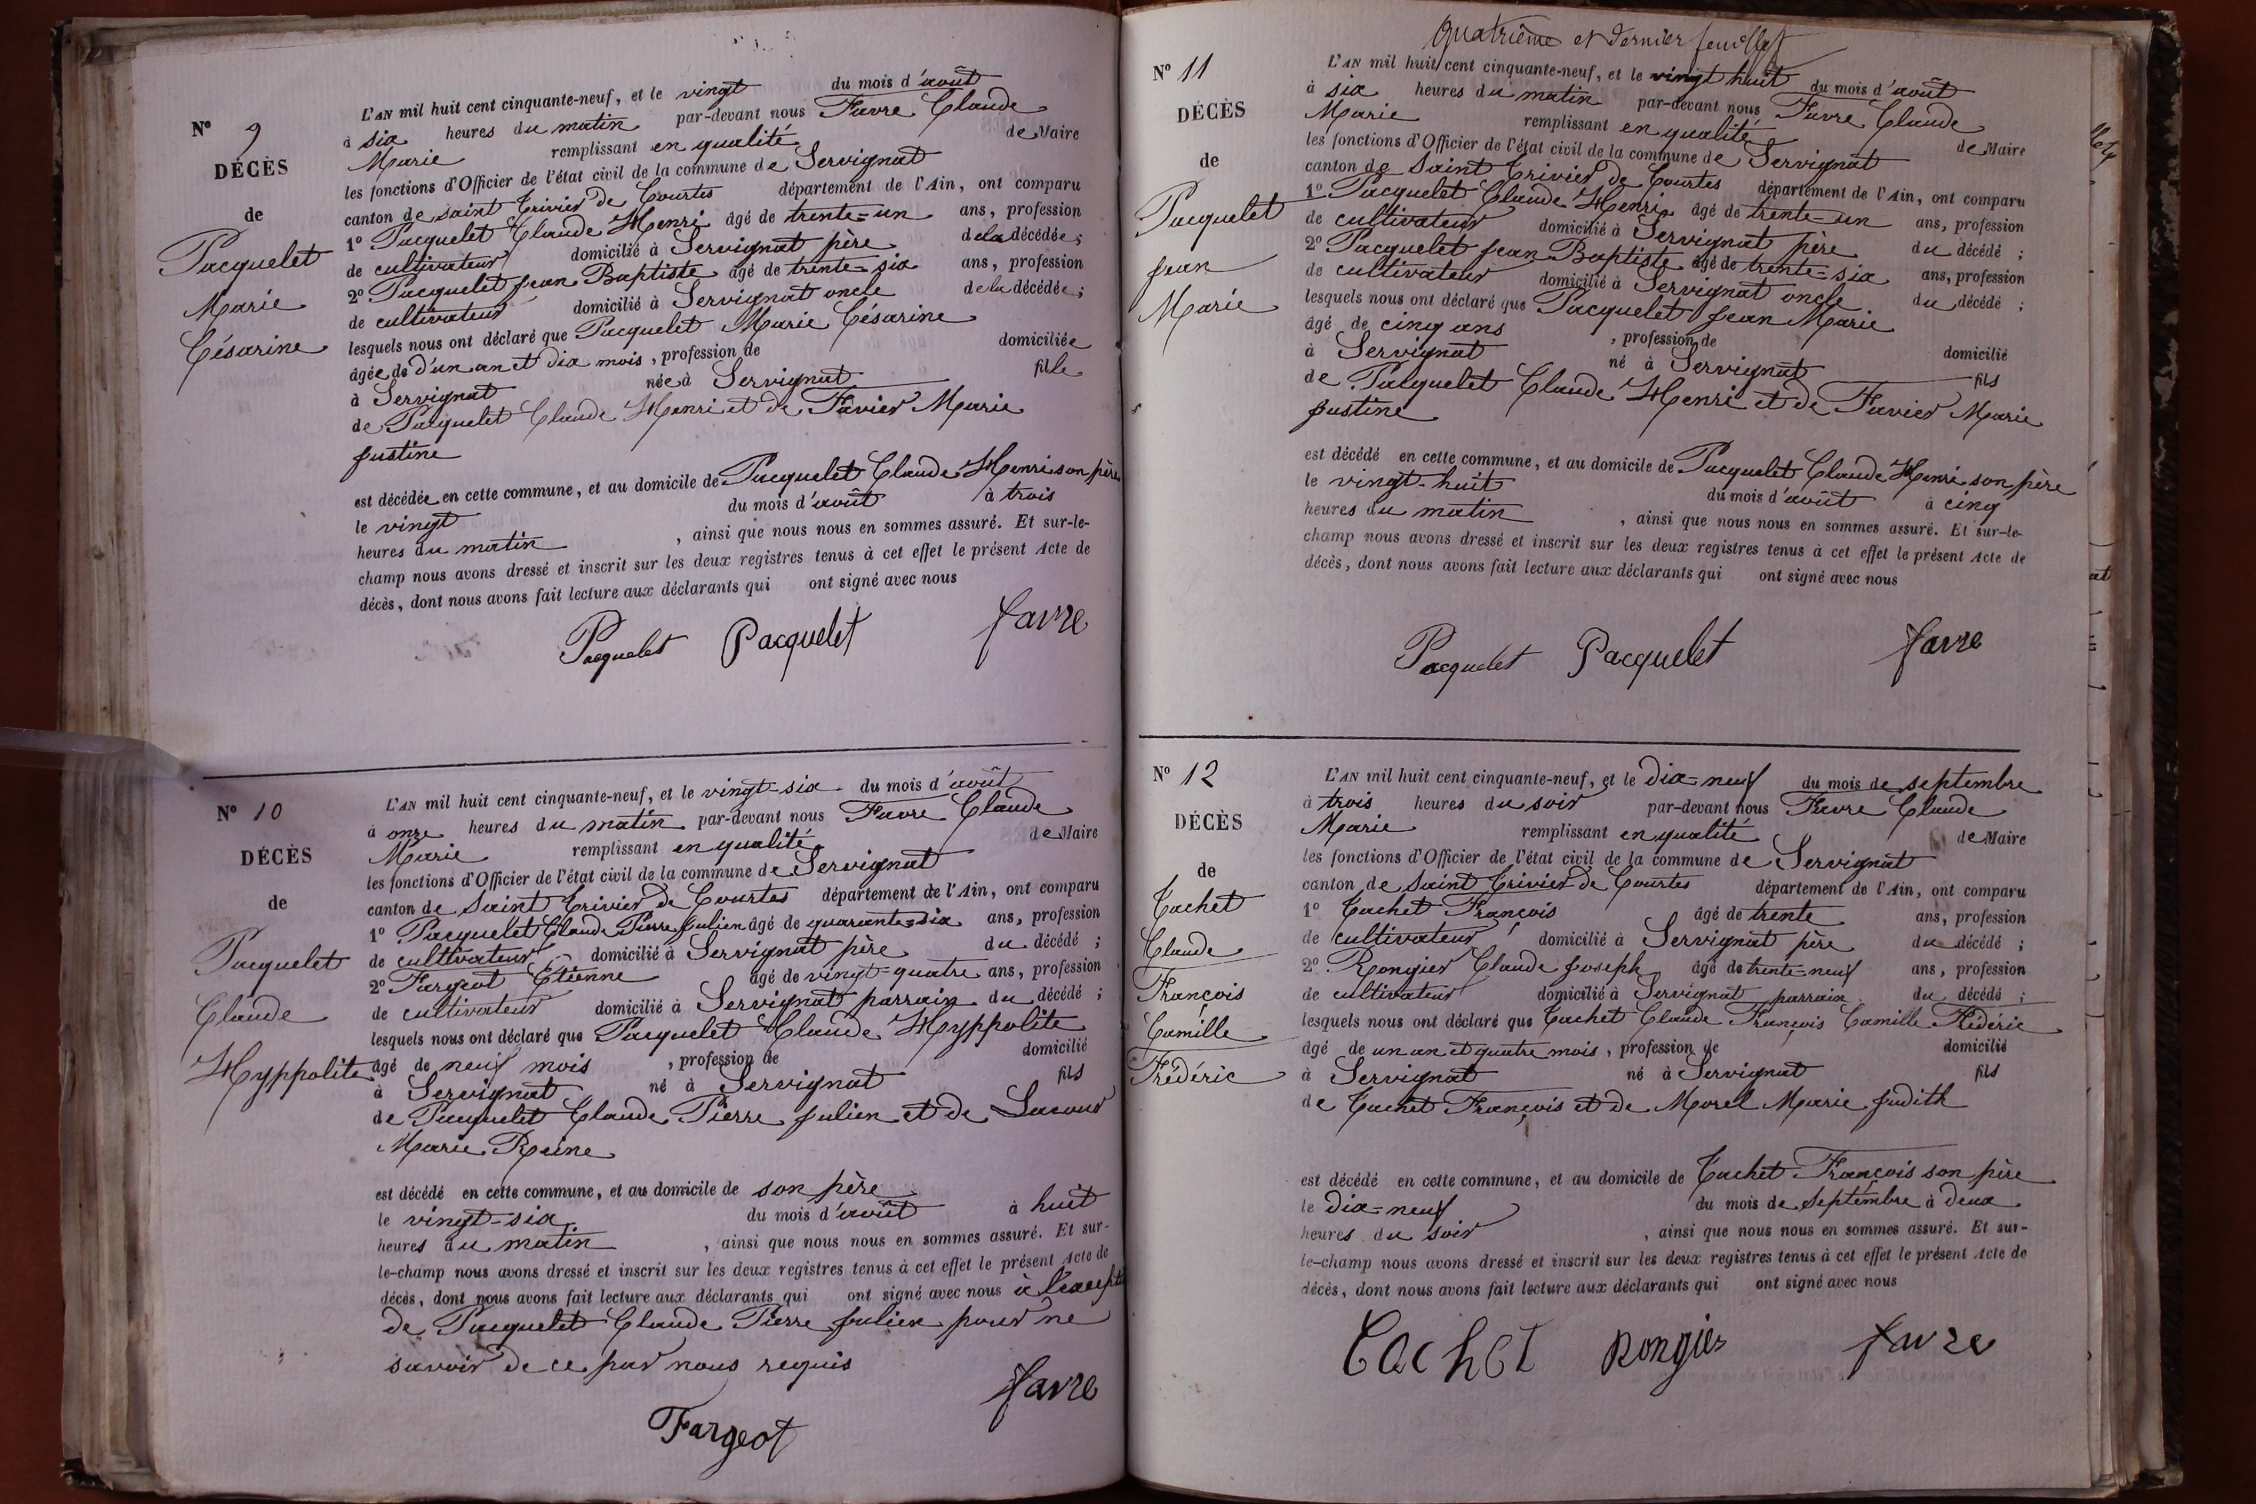 N° 9
DÉCÈS
de
Pacquelet
Marie
Césarine
L'AN mil huit cent cinquante-neuf, et le vingt du mois d'août
à six heures du matin par-devant nous Favre Claude
Marie remplissant en qualité de Maire
les fonctions d'Officier de l'état civil de la commune de Servignat
canton de saint Trivier de Courtes département de l'Ain, ont comparu
1° Pacquelet Claude Henri âgé de trente=un ans, profession
de cultivateur domicilié à Servignat père de la décédée ;
2° Pacquelet Jean Baptiste âgé de trente=six ans, profession
de cultivateur domicilié à Servignat oncle de la décédée ;
lesquels nous ont déclaré que Pacquelet Marie Césarine
âgée de d'un an et dix mois, profession de domiciliée
à Servignat née à Servignat fille
de Pacquelet Claude Henri et de Favier Marie
Justine
est décédée en cette commune, et au domicile de Pacquelet Claude Henri son père
le vingt du mois d'août à trois
heures du matin , ainsi que nous nous en sommes assuré. Et sur-le-
champ nous avons dressé et inscrit sur les deux registres tenus à cet effet le présent Acte de
décès, dont nous avons fait lecture aux déclarants qui ont signé avec nous
Pacquelet Pacquelet favre
N° 10
DÉCÈS
de
Pacquelet
Claude
Hyppolite
L'AN mil huit cent cinquante-neuf, et le vingt=six du mois d'août
à onze heures du matin par-devant nous Favre Claude
Marie remplissant en qualité de Maire
les fonctions d'Officier de l'état civil de la commune de Servignat
canton de Saint Trivier de Courtes département de l'Ain, ont comparu
1° Pacquelet Claude Pierre Julien âgé de quarante=dix ans, profession
de cultivateur domicilié à Servignat père du décédé ;
2° Fargeot Etienne âgé de vingt=quatre ans, profession
de cultivateur domicilié à Servignat parrain du décédé ;
lesquels nous ont déclaré que Pacquelet Claude Hyppolite
âgé de neuf mois , profession de domicilié
à Servignat né à Servignat fils
de Pacquelet Claude Pierre Julien et de Lacour
Marie Reine
est décédé en cette commune, et au domicile de son père
le vingt=six du mois d'août à huit
heures du matin , ainsi que nous nous en sommes assuré. Et sur-
le-champ nous avons dressé et inscrit sur les deux registres tenus à cet effet le présent Acte de
décès, dont nous avons fait lecture aux déclarants qui ont signé avec nous à
de Pacquelet Claude Pierre Julien pour ne
savoir de ce par nous requis
favre
Fargeot
Quatrième et dernier feuillet
N° 11
DÉCÈS
de
Pacquelet
Jean
Marie
L'AN mil huit cent cinquante-neuf, et le vingt huit du mois d'août
à six heures du matin par-devant nous Favre Claude
Marie remplissant en qualité de Maire
les fonctions d'Officier de l'état civil de la commune de Servignat
canton de Saint Trivier de Courtes département de l'Ain, ont comparu
1° Pacquelet Claude Henri âgé de trente=un ans, profession
de cultivateur domicilié à Servignat père du décédé ;
2° Pacquelet Jean Baptiste âgé de trente=six ans, profession
de cultivateur domicilié à Servignat oncle du décédé ;
lesquels nous ont déclaré que Pacquelet Jean Marie
âgé de cinq ans , profession de domicilié
à Servignat né à Servignat fils
de Pacquelet Claude Henri et de Favier Marie
Justine
est décédé en cette commune, et au domicile de Pacquelet Claude Henri son père
le vingt-huit du mois d'août à cinq
heures du matin , ainsi que nous nous en sommes assuré. Et sur-le-
champ nous avons dressé et inscrit sur les deux registres tenus à cet effet le présent Acte de
décès, dont nous avons fait lecture aux déclarants qui ont signé avec nous
Pacquelet Pacquelet favre
N° 12
DÉCÈS
de
Cachet
Claude
François
Camille
Frédéric
L'AN mil huit cent cinquante-neuf, et le dix=neuf du mois de septembre
à trois heures du soir par-devant nous Favre Claude
Marie remplissant en qualité de Maire
les fonctions d'Officier de l'état civil de la commune de Servignat
canton de Saint Trivier de Courtes département de l'Ain, ont comparu
1° Cachet François âgé de trente ans, profession
de cultivateur domicilié à Servignat père du décédé ;
2° Rongier Claude Joseph âgé de trente=neuf ans, profession
de cultivateur domicilié à Servignat parrain du décédé ;
lesquels nous ont déclaré que Cachet Claude François Camille Frédéric
âgé de un an et quatre mois, profession de domicilié
à Servignat né à Servignat fils
de Cachet François et de Morel Marie Judith
est décédé en cette commune, et au domicile de Cachet François son père
le dix=neuf du mois de septembre à deux
heures du soir , ainsi que nous nous en sommes assuré. Et sur-
le-champ nous avons dressé et inscrit sur les deux registres tenus à cet effet le présent Acte de
décès, dont nous avons fait lecture aux déclarants qui ont signé avec nous
Cachet Rongier favre